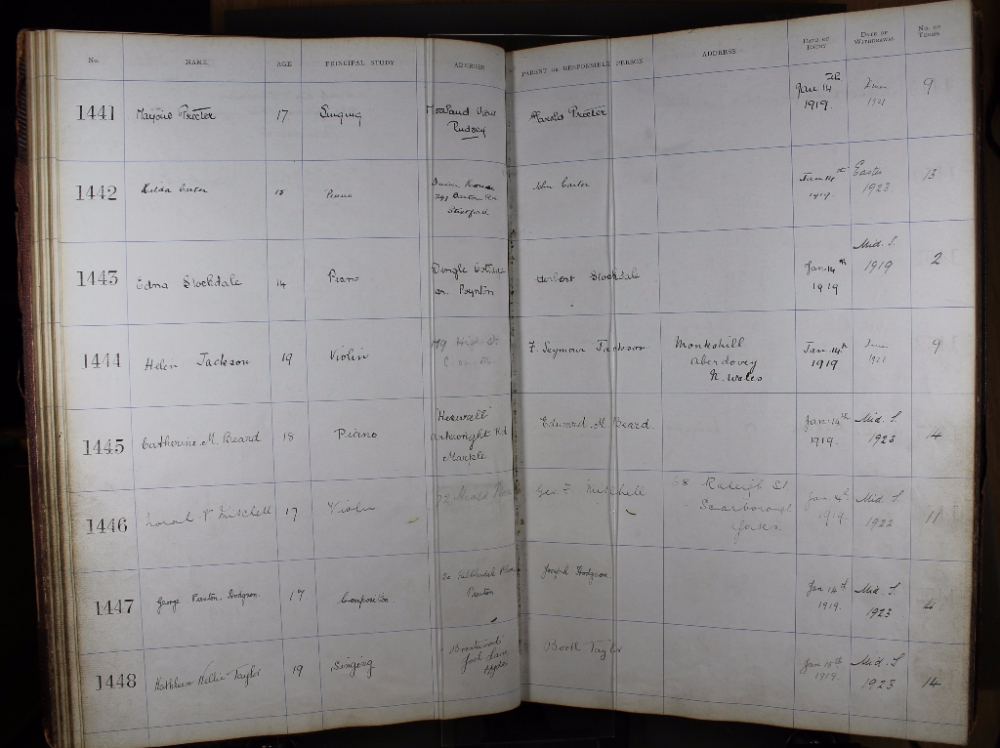 No. NAME AGE PRINCIPAL STUDY ADDRESS PARENT OR RESPONSIBLE PERSON ADDRESS DATE OF ENTRY DATE OF WITHDRAWAL NO. OF TERMS
1441 Marjorie Procter 17 Singing Moorland View Harold Procter Jan 14th 9
Pudsey 1919.
1442 Hilda Carter Piano John Carter Jan 14th Easter 13
Stretford 1919 1923
1443 Edna Stockdale 14 Piano Dingle Herbert Stockdale Jan 14th Mid. S. 2
Poynton 1919 1919
1444 Helen Jackson 19 Violin F. Seymour Jackson Monkshill Jan. 14th 9
Aberdovey 1919
N. Wales
1445 Catherine M. Beard 18 Piano "Heswall" Edward M. Beard Jan 14th Mid. S 14
Arkwright Rd 1919. 1923
Marple
1446 Mitchell 17 Violin Geo. F. Mitchell 68 Raleigh St Mid. S 11
Scarborough 1919. 1922
Yorks.
1447 George Preston Hodgson 17 Composition Joseph Hodgson Jan 14th Mid. S
Preston 1919. 1923
1448 Kathleen Nellie Taylor 19 Singing Booth Taylor Jan 15th Mid. S 14
Hyde 1919. 1923